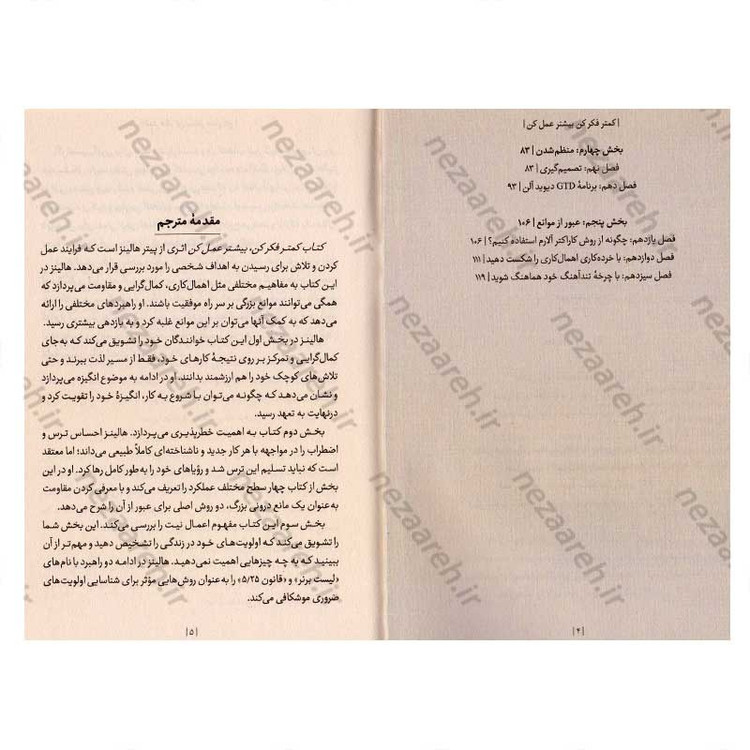 | کمتر فکر کن بیشتر عمل کن |
بخش چهارم: منظم‌شدن | ۸۳
فصل نهم: تصمیم‌گیری | ۸۳
فصل دهم: برنامهٔ GTD دیوید آلن | ۹۳
بخش پنجم: عبور از موانع | ۱۰۶
فصل یازدهم: چگونه از روش کاراکتر آلارم استفاده کنیم؟ | ۱۰۶
فصل دوازدهم: با خرده‌کاری اهمال‌کاری را شکست دهید | ۱۱۱
فصل سیزدهم: با چرخهٔ تندآهنگ خود هماهنگ شوید | ۱۱۹
| ۴ |
مقدمهٔ مترجم
کتاب کمتر فکر کن، بیشتر عمل کن اثری از پیتر هالینز است که فرایند عمل
کردن و تلاش برای رسیدن به اهداف شخصی را مورد بررسی قرار می‌دهد. هالینز در
این کتاب به مفاهیم مختلفی مثل اهمال‌کاری، کمال‌گرایی و مقاومت می‌پردازد که
همگی می‌توانند موانع بزرگی بر سر راه موفقیت باشند. او راهبردهای مختلفی را ارائه
می‌دهد که به کمک آنها می‌توان بر این موانع غلبه کرد و به بازدهی بیشتری رسید.
هالینز در بخش اول این کتاب خوانندگان خود را تشویق می‌کند که به‌جای
کمال‌گرایی و تمرکز بر روی نتیجهٔ کارهای خود، فقط از مسیر لذت ببرند و حتی
تلاش‌های کوچک خود را هم ارزشمند بدانند. او در ادامه به موضوع انگیزه می‌پردازد
و نشان می‌دهد که چگونه می‌توان با شروع به کار، انگیزهٔ خود را تقویت کرد و
درنهایت به تعهد رسید.
بخش دوم کتاب به اهمیت خطرپذیری می‌پردازد. هالینز احساس ترس و
اضطراب را در مواجهه با هر کار جدید و ناشناخته‌ای کاملاً طبیعی می‌داند؛ اما معتقد
است که نباید تسلیم این ترس شد و رؤیاهای خود را به‌طور کامل رها کرد. او در این
بخش از کتاب چهار سطح مختلف عملکرد را تعریف می‌کند و با معرفی کردن مقاومت
به‌عنوان یک مانع درونی بزرگ، دو روش اصلی برای عبور از آن را شرح می‌دهد.
بخش سوم این کتاب مفهوم اعمال نیت را بررسی می‌کند. این بخش شما
را تشویق می‌کند که اولویت‌های خود در زندگی را تشخیص دهید و مهم‌تر از آن
ببینید که به چه چیزهایی اهمیت نمی‌دهید. هالینز در ادامه دو راهبرد با نام‌های
«لیست برنر» و «قانون ۵/۲۵» را به‌عنوان روش‌هایی مؤثر برای شناسایی اولویت‌های
ضروری موشکافی می‌کند.
| ۵ |
nezaareh.ir
nezaareh.ir
nezaareh.ir
nezaareh.ir
nezaareh.ir
nezaareh.ir
nezaareh.ir
nezaareh.ir
nezaareh.ir